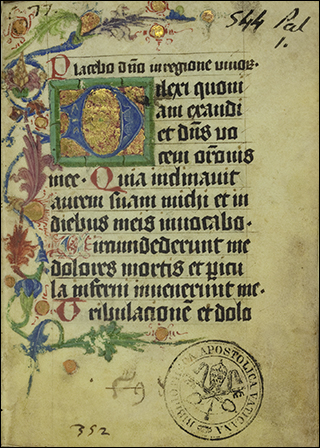 77
544 Pal
1.
Placebo dño in regione vivor.
Dilexi quoni
am exaudi
et dñs vo
cem orõnis
mee. Quia inclinavit
aurem suam michi et in
diebus meis invocabo.
Circundederunt me
dolores mortis et peri͛cu
la inferni invenerunt me.
Tribulacionẽ et dolo
BIBLIOTHECA APOSTOLICA VATICANA
352